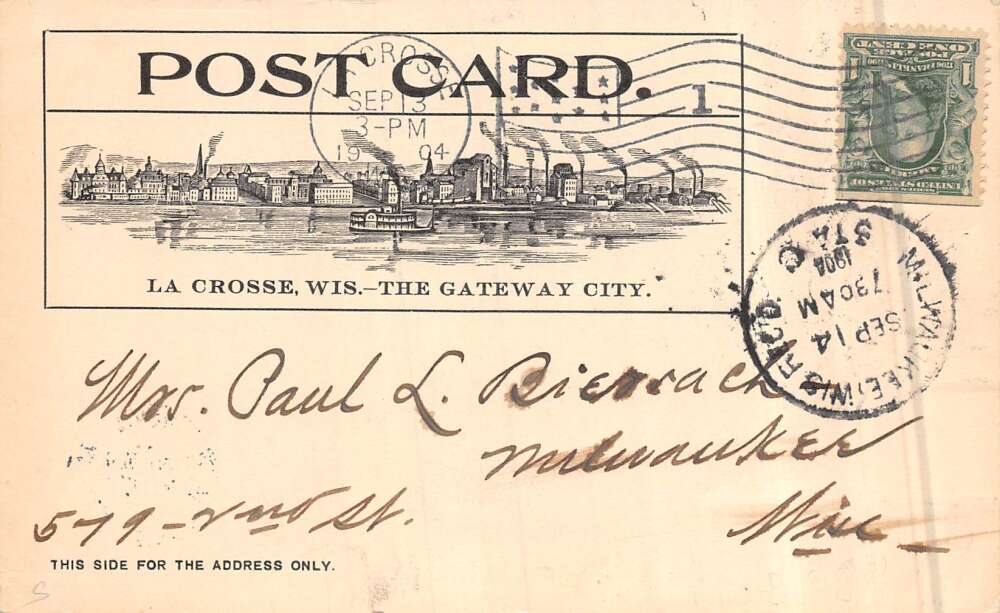 POST CARD.
LA CROSSE
SEP 13
3-PM
1904
1
ONE CENT
1
1
LA CROSSE, WIS.—THE GATEWAY CITY.
MILWAUKEE, WIS. REC'D.
SEP 14
730 AM
1904
STA. C
Mrs. Paul L. Biersach
Milwaukee
579 - 2nd St.
Wisc
THIS SIDE FOR THE ADDRESS ONLY.
S